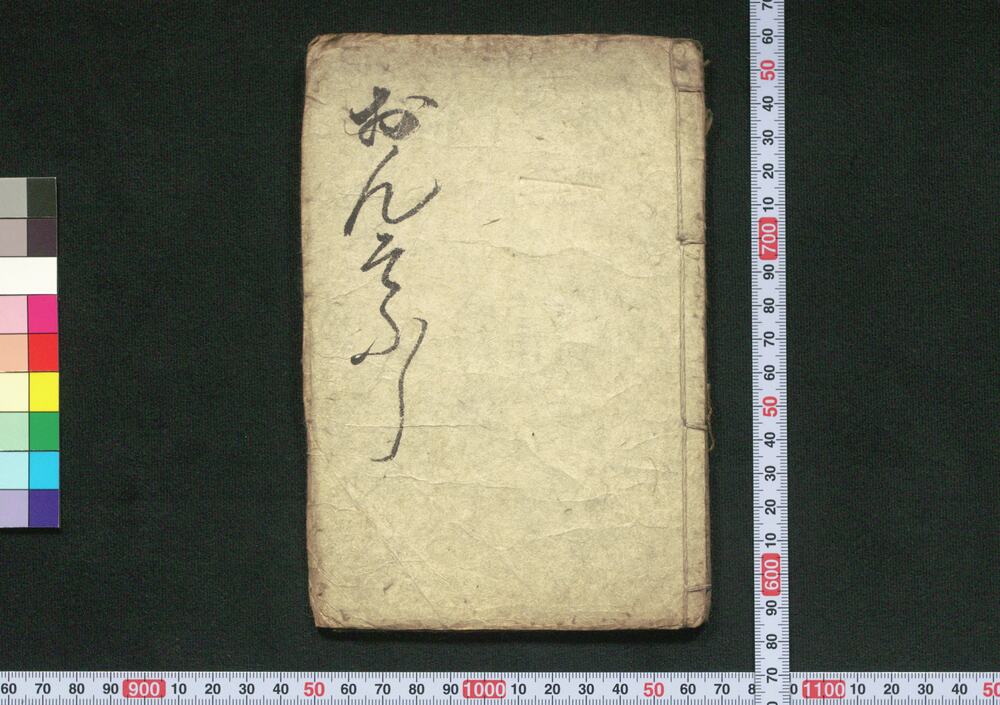 おんそふし
70 60 50 40 30 20 10 700 90 80 70 60 50 40 30 20 10 600 90 80 70
60 70 80 90 900 10 20 30 40 50 60 70 80 90 1000 10 20 30 40 50 60 70 8 0 1100 10 20 30 40 50